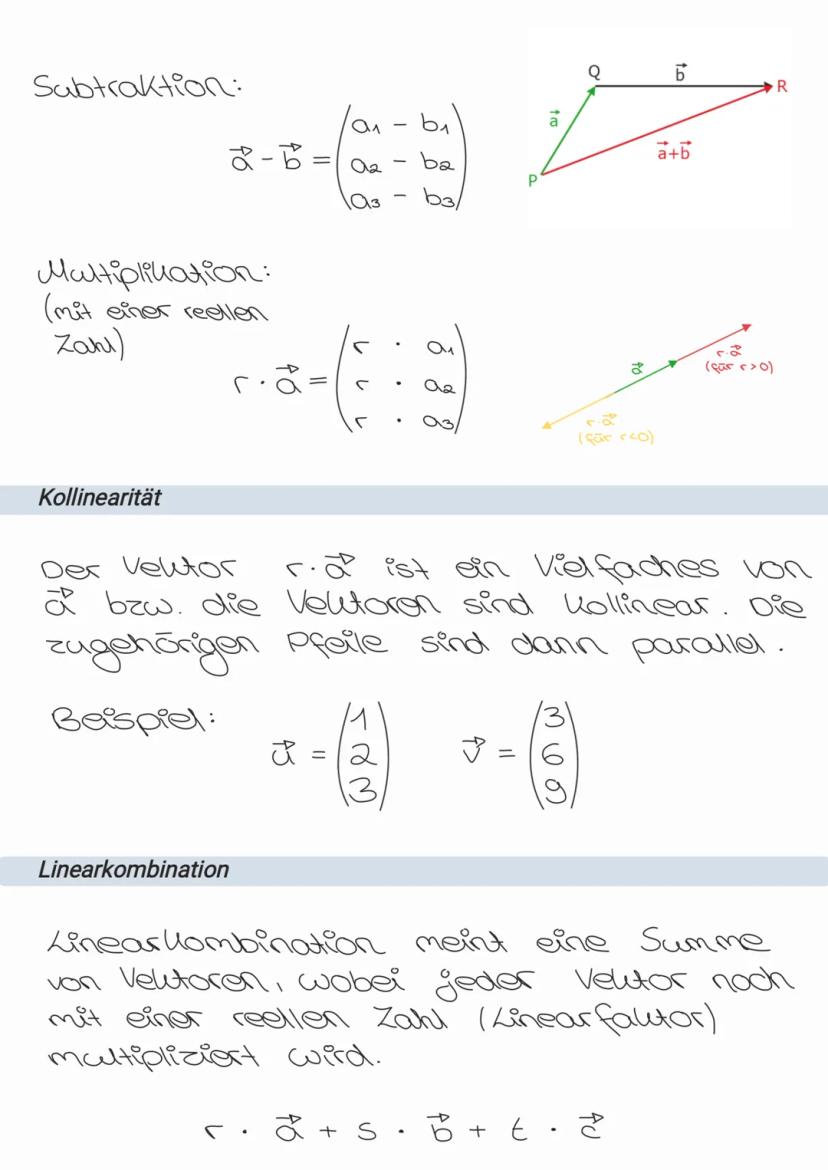 Subtraktion:
Q
b⃗
R
a⃗
a⃗+b⃗
P
a⃗ - b⃗ = (a₁ - b₁
a₂ - b₂
a₃ - b₃)
Multiplikation:
(mit einer reellen
Zahl)
r · a⃗ = (r · a₁
r · a₂
r · a₃)
a⃗
r·a⃗
(für r>0)
r·a⃗
(für r<0)
Kollinearität
Der Vektor r·a⃗ ist ein Vielfaches von
a⃗ bzw. die Vektoren sind kollinear. Die
zugehörigen Pfeile sind dann parallel.
Beispiel:
u⃗ = (1 2 3) v⃗ = (3 6 9)
Linearkombination
Linearkombination meint eine Summe
von Vektoren, wobei jeder Vektor noch
mit einer reellen Zahl (Linearfaktor)
multipliziert wird.
r · a⃗ + s · b⃗ + t · c⃗